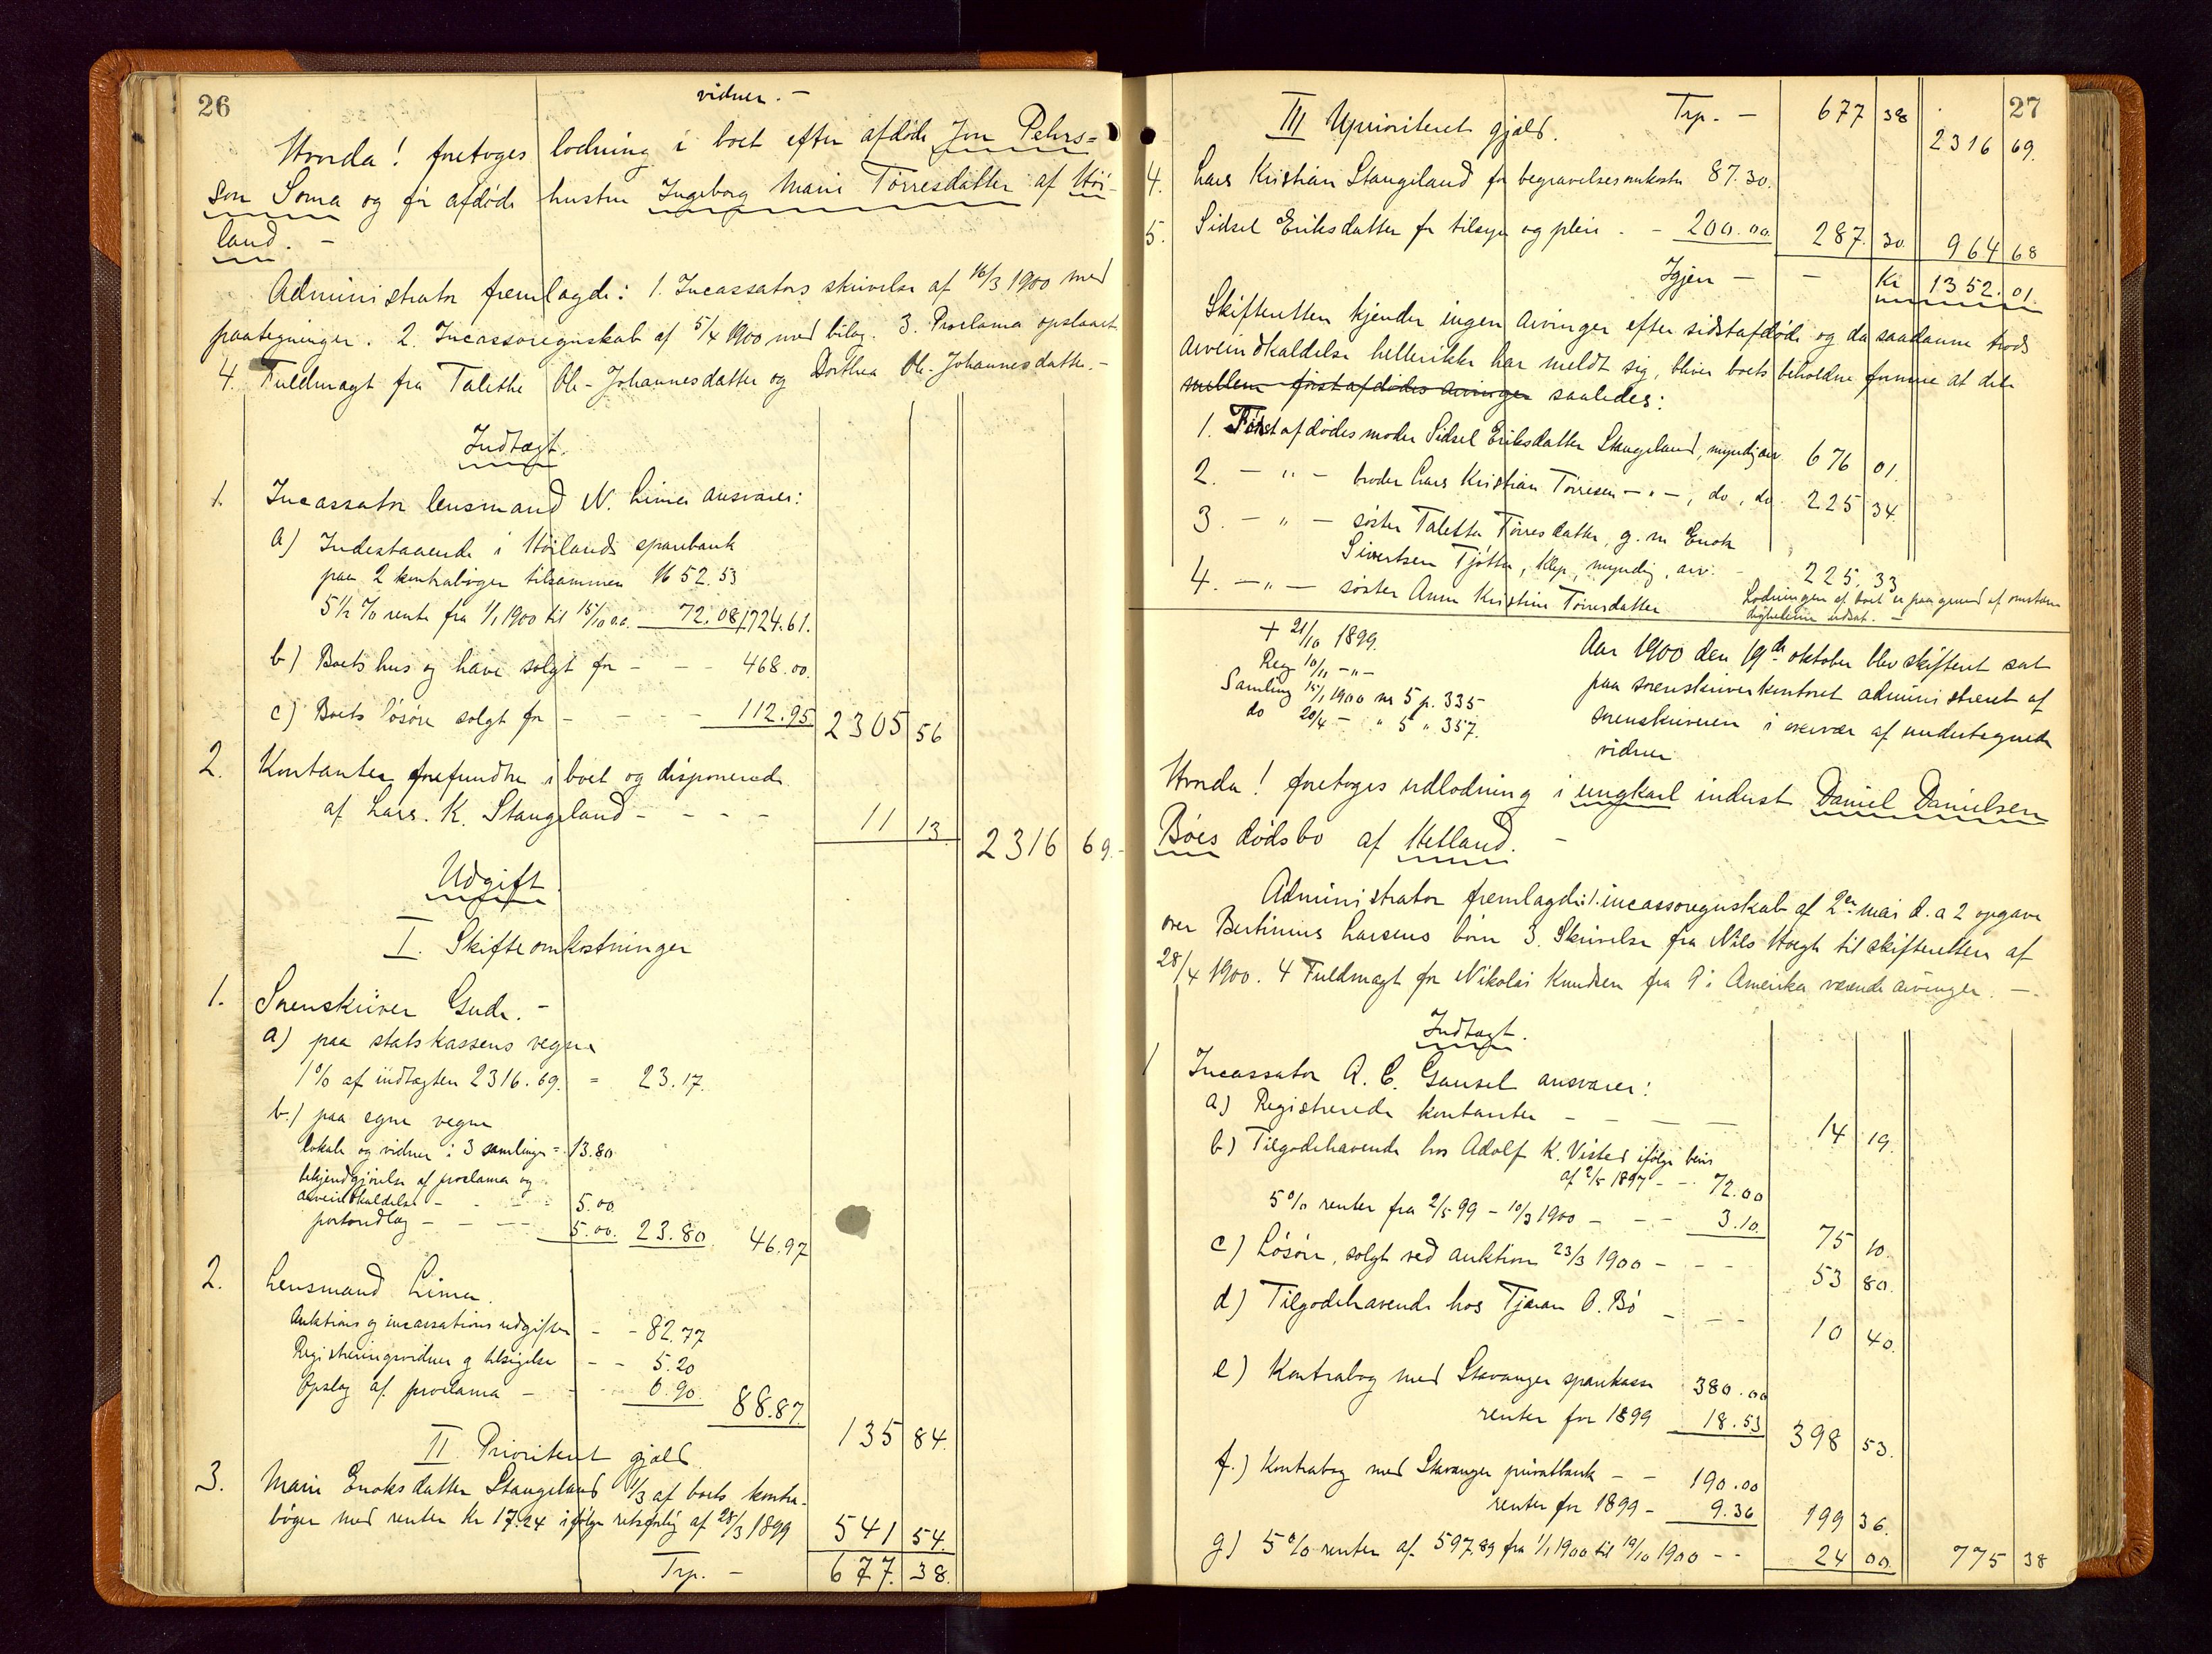 26
vidner. –
Hvorda! foretoges lodning i boet efter afdøde Jon Pehrs=
son Soma og før afdøde hustru Ingeborg Marie Tørresdatter af Høi-
land. –
Administrator fremlagde: 1. Incassators skrivelse af 16/3 1900 med
paategninger. 2. Incassoregnskab af 5/4 1900 med bilag. 3. Proclama opslaaet
4. Fuldmagt fra Talethe Ole-Johannesdatter og Dorthea Ole-Johannesdatter. –
Indtægt.
1. Incassator lensmand N. Lima ansvarer:
a) Indestaaende i Høilands sparebank
paa 2 kontrabøger tilsammen 1652.53
5 1/2 % rente fra 1/1 1900 til 15/10 d.a. 72.08 1724.61.
b) Boets hus og have solgt for – – – 468.00.
c) Boets løsøre solgt for – – – – 112.95 2305 56
2. Kontanter forefundne i boet og disponerede
af Lars. K. Stangeland – – – – 11 13 2316 69. –
Udgift.
I. Skifteomkostninger
1. Sorenskriver Gude. –
a) paa statskassens vegne
1% af indtægten 2316.69. = 23.17.
b.) paa egne vegne
lokale og vidner i 3 samlinger = 13.80
bekjendtgjørelse af proclama og
arveindkaldelse – – – 5.00
portoudlæg – – – 5.00. 23.80 46.97
2. Lensmand Lima.
Auktions og incassations udgifter – – 82.77
Registreringsvidner og tilsigelse – – 5.20
Opslag af proclama – – 0.90. 88.87 135 84.
II Prioriteret gjæld.
3. Marie Enoksdatter Stangeland 1/3 af boets kontra-
bøger med renter Kr 17.24 ifølge retsforlig af 28/3 1899 541 54.
Trp. – 677. 38.
27
III Uprioriteret gjæld. Trp. – 677 38
2316 69.
4. Lars Kristian Stangeland for begravelsesomkostn 87.30.
5. Sidsel Eriksdatter for tilsyn og pleie – – 200.00 287. 30. 964 68
Igjen – – Kr 1352. 01.
Skifteretten kjender ingen arvinger efter sidstafdøde og da saadanne trods
arveindkaldelse hellerikke har meldt sig, bliver boets beholdne formue at dele
mellem først afdødes arvinger saaledes:
1. Førstafdødes moder Sidsel Eriksdatter Stangeland, myndig arv. 676 01.
2. – " – broder Lars Kristian Tørresen – " –, do, do. 225 34.
3. – " – søster Taletta Tørresdatter, g. m. Enok
Sivertsen Tjøtta, Klep, myndig, arv. – 225. 33
4. – " – søster Anne Kristine Tørresdatter
Lodningen af boet er paa grund af omstæn
dighederne udsat. –
+ 21/10 1899.
Reg 10/11 – " –
Samling 15/1 1900 nr 5 p. 335 –
do 20/4 – " 5 " 357.
Aar 1900 den 19de oktober blev skifteret sat
paa sorenskriverkontoret administreret af
sorenskriveren i overvær af undertegnede
vidner
Hvorda! foretoges udlodning i ungkarl inderst Daniel Danielsen
Bøes dødsbo af Hetland. –
Administrator fremlagde: 1. incassoregnskab af 2en mai d. a 2 opgave
over Bertinius Larsens børn 3. Skrivelse fra Nils Hoegh til skifteretten af
28/4 1900. 4 Fuldmagt for Nikolai Knudsen fra 9 i Amerika værende arvinger. –
Indtægt.
1 Incassator A. C. Gausel ansvarer:
a) Registrerede kontanter – – – – 14 19.
b) Tilgodehavende hos Adolf K. Viste ifølge bevis
af 2/5 1897 – – 72.00
5% renter fra 2/5 99 – 10/3 1900 – – – 3.10. 75 10.
c) Løsøre, solgt ved auktion 23/3 1900 – – – 53 80.
d) Tilgodehavende hos Tjæran O. Bø – – – 10 40.
e) Kontrabog med Stavanger sparekasse 380.00
renter for 1899 18.53 398 53.
f.) Kontrabog med Stavanger privatbank – – 190.00
renter for 1899 – 9.36 199 36.
g) 5% renter af 597.89 fra 1/1 1900 til 19/10 1900 – – 24 00. 775 38